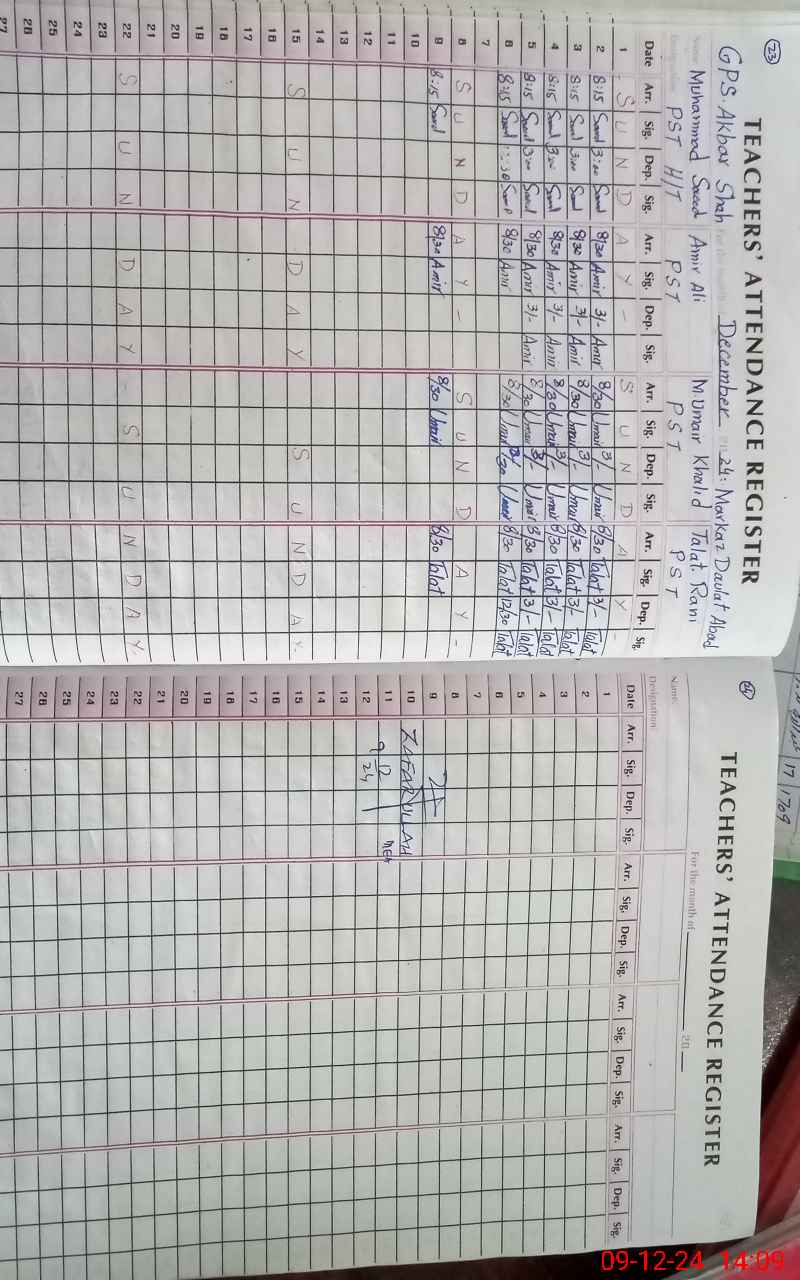 23
TEACHERS' ATTENDANCE REGISTER
GPS. Akbar Shah For the month of December 2024: Markaz Daulat Abad
Name Muhammad Saeed Amir Ali M. Umair Khalid Talat Rani
Designation PST H/T PST PST PST
Date Arr. Sig. Dep. Sig. Arr. Sig. Dep. Sig. Arr. Sig. Dep. Sig. Arr. Sig. Dep. Sig.
1 S U N D A Y - S U N D A Y -
2 8:15 Saeed 3:00 Saeed 8/30 Amir 3/- Amir 8/30 Umair 3/- Umair 8/30 Talat 3/- Talat
3 8:15 Saeed 3:00 Saeed 8/30 Amir 3/- Amir 8/30 Umair 3/- Umair 8/30 Talat 3/- Talat
4 8:15 Saeed 3:00 Saeed 8/30 Amir 3/- Amir 8/30 Umair 3/- Umair 8/30 Talat 3/- Talat
5 8:15 Saeed 3:00 Saeed 8/30 Amir 3/- Amir 8/30 Umair 3/- Umair 8/30 Talat 3/- Talat
6 8:15 Saeed 12:30 Saeed 8/30 Amir 8/30 Umair Umair 8/30 Talat 12/30 Talat
7
8 S U N D A Y - S U N D A Y -
9 8:15 Saeed 8/30 Amir 8/30 Umair 8/30 Talat
10
11
12
13
14
15 S U N D A Y S U N D A Y-
16
17
18
19
20
21
22 S U N D A Y - S U N D A Y-
23
24
25
26
27
24
TEACHERS' ATTENDANCE REGISTER
For the month of 20
Name
Designation
Date Arr. Sig. Dep. Sig. Arr. Sig. Dep. Sig. Arr. Sig. Dep. Sig. Arr. Sig. Dep. Sig.
1
2
3
4
5
6
7
8
9
10 ZAFARULLAH
11 9 12
12 24
13
14
15
16
17
18
19
20
21
22
23
24
25
26
27
17 1769
09-12-24 14:09